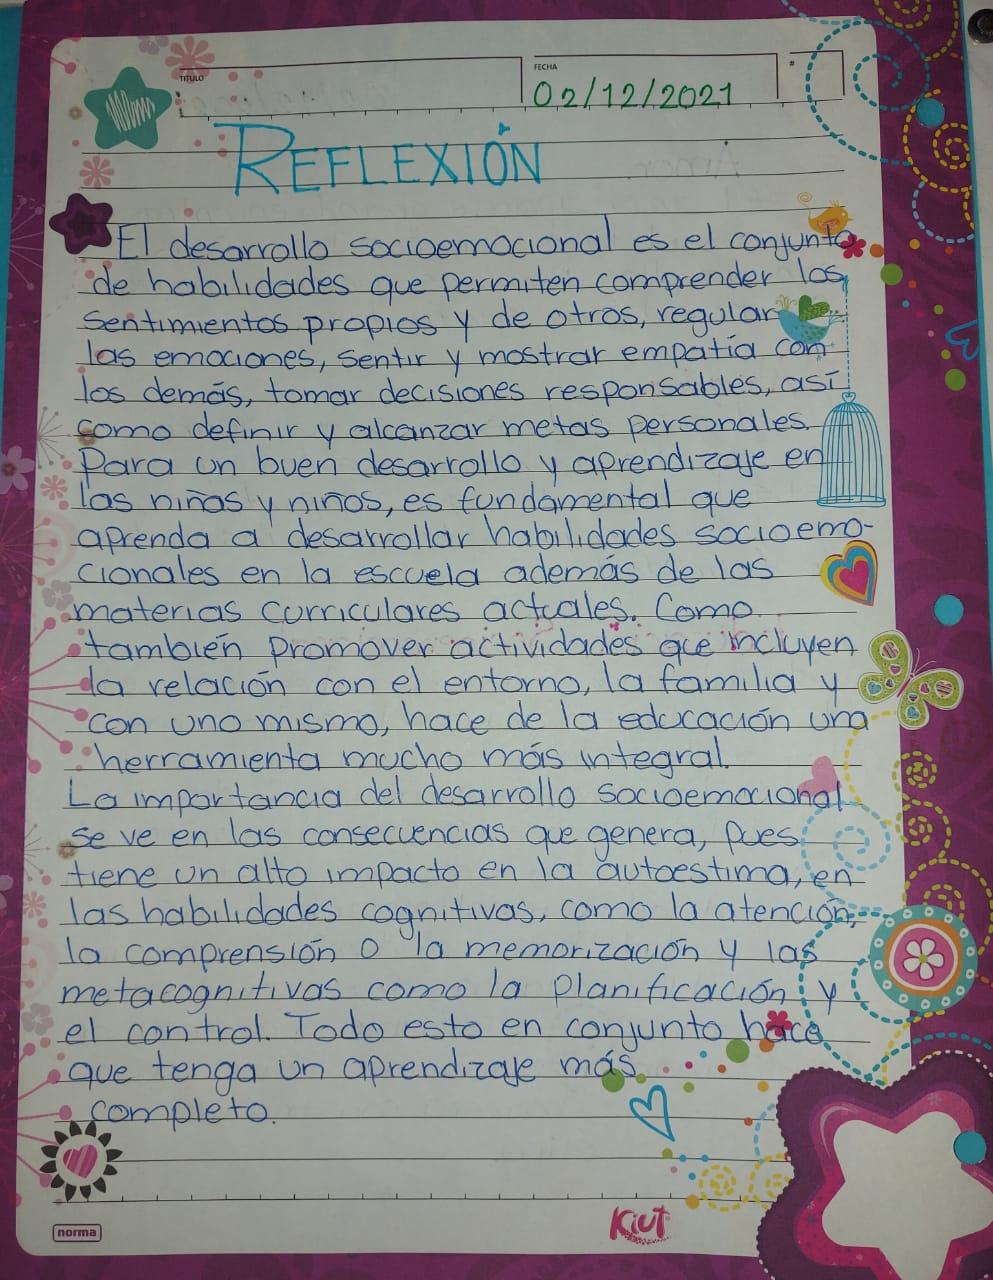 TITULO
FECHA
#
02/12/2021
REFLEXIÓN
El desarrollo socioemocional es el conjunto
de habilidades que permiten comprender los
sentimientos propios y de otros, regular
las emociones, sentir y mostrar empatía con
los demás, tomar decisiones responsables, así
como definir y alcanzar metas personales.
Para un buen desarrollo y aprendizaje en
las niñas y niños, es fundamental que
aprenda a desarrollar habilidades socioemo-
cionales en la escuela además de las
materias curriculares actuales. Como
también promover actividades que incluyen
la relación con el entorno, la familia y
con uno mismo, hace de la educación una
herramienta mucho más integral.
La importancia del desarrollo socioemocional
se ve en las consecuencias que genera, pues
tiene un alto impacto en la autoestima, en
las habilidades cognitivas, como la atención,
la comprensión o la memorización y las
metacognitivas como la planificación y
el control. Todo esto en conjunto hace
que tenga un aprendizaje más
completo.
norma
Kiut